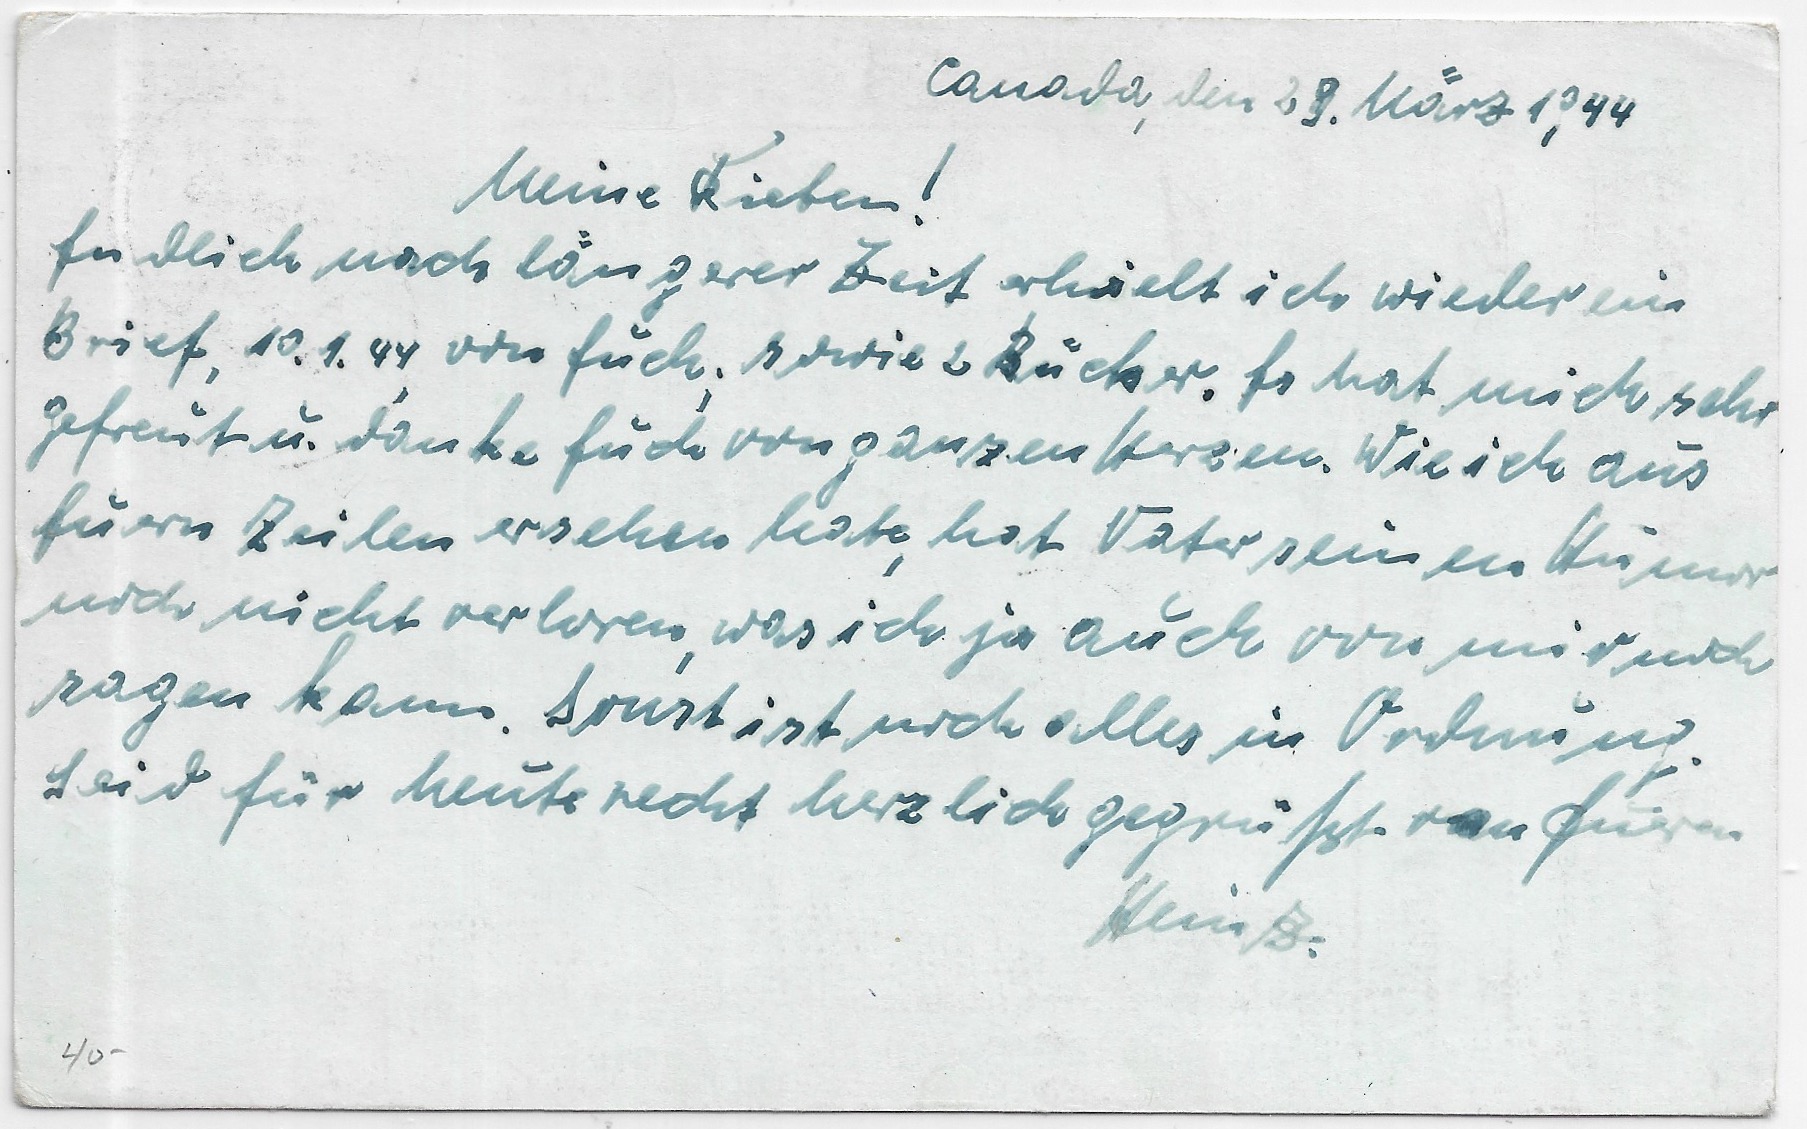 Canada, den 29. März 1944
Meine Lieben!
Endlich nach längerer Zeit erhielt ich wieder ein
Brief, 10.1.44, von Euch, sowie 2 Bücher. Es hat mich sehr
gefreut u. danke Euch von ganzen Herzen. Wie ich aus
Euern Zeilen ersehen habe, hat Vater seinen Humor
noch nicht verloren, was ich ja auch von mir noch
sagen kann. Sonst ist noch alles in Ordnung.
Seid für heute recht herzlich gegrüßt von Euren
Heinz.
40-